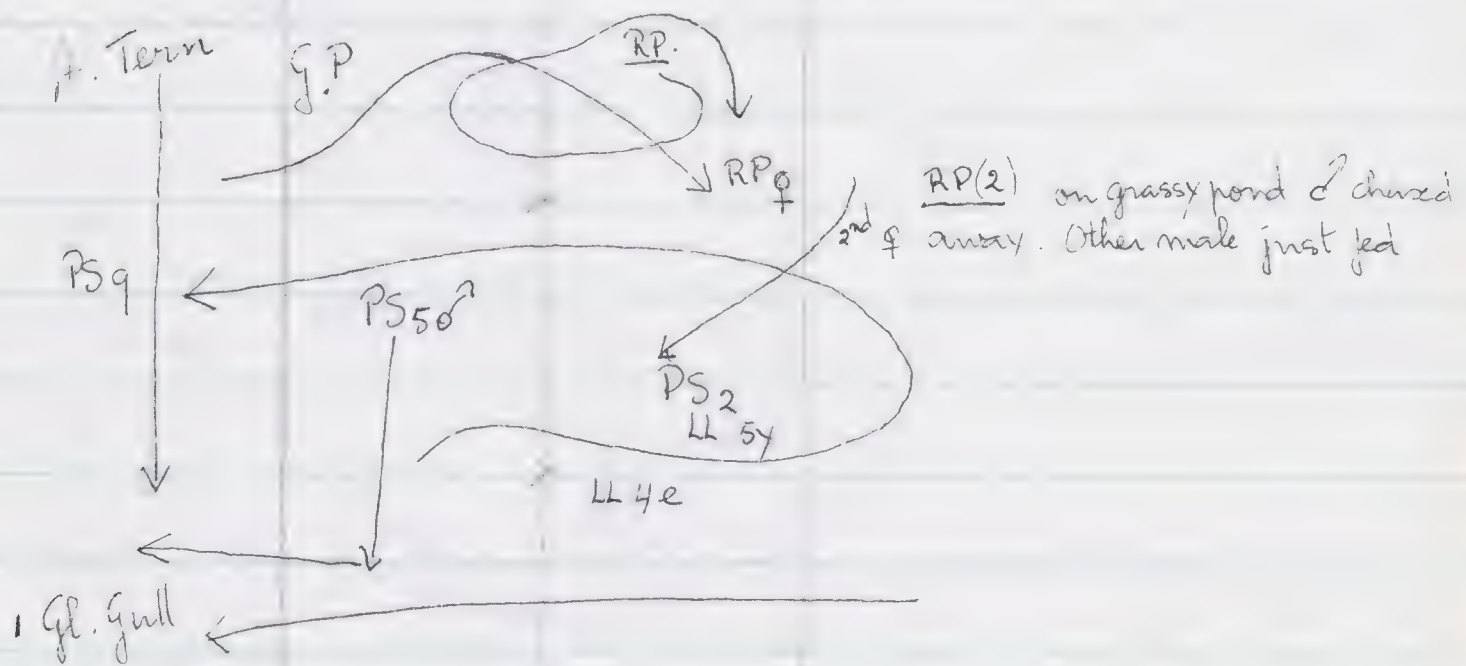 A. Tern
G.P
RP.
RP♀
RP(2) on grassy pond ♂ chased
2nd ♀ away. Other male just fed
PS9
PS5♂
PS2
LL 5y
LL 4e
1 Gl. Gull